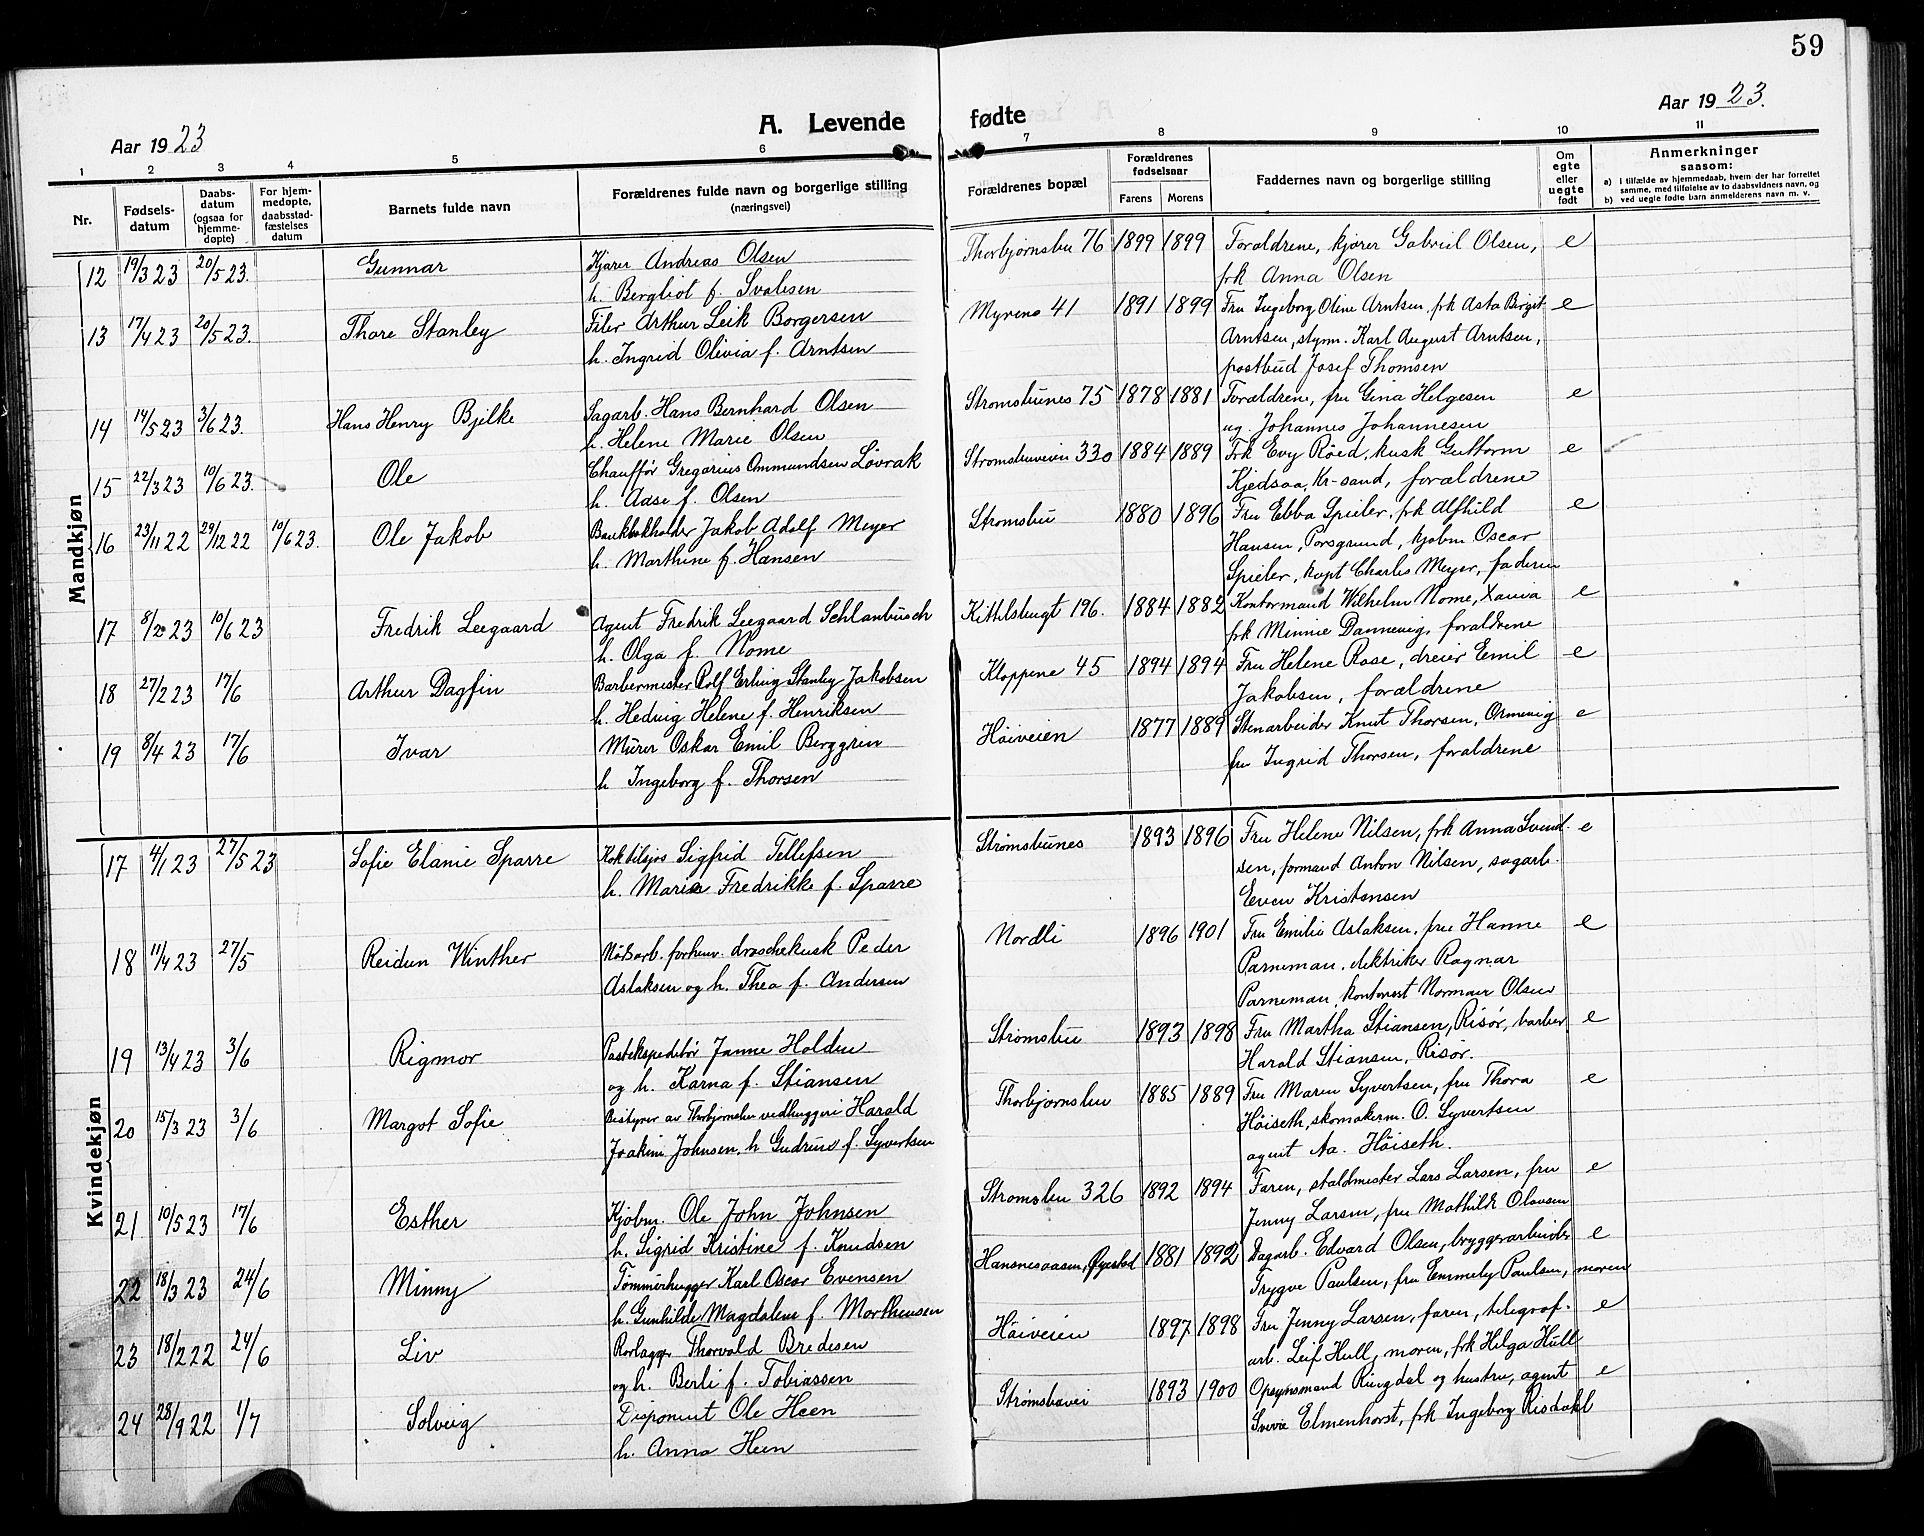 59
Aar 1923
A. Levende fødte
Aar 1923.
1 2 3 4 5 6 7 8 9 10 11
Nr.
Fødsels-
datum
Daabs-
datum
(ogsaa for
hjemme-
døpte)
For hjem-
medøpte,
daabsstad-
fæstelses
datum
Barnets fulde navn
Forældrenes fulde navn og borgerlige stilling
(næringsvei)
Forældrenes bopæl
Forældrenes
fødselsaar
Farens Morens
Faddernes navn og borgerlige stilling
Om
egte
eller
uegte
født
Anmerkninger
saasom:
a) i tilfælde av hjemmedaab, hvem der har forrettet
samme, med tilføielse av to daabsvidners navn, og
b) ved uegte fødte barn anmelderens navn m. v.
Mandkjøn
12 19/3 23 20/5 23. Gunnar Kjører Andreas Olsen Thorbjørnsbu 76 1899 1899 Forældrene, kjører Gabriel Olsen, e
h. Bergliot f. Svalesen frk Anna Olsen
13 17/4 23 20/5 23. Thore Stanley Filer Arthur Leik Borgersen Myrene 41 1891 1899 Fru Ingeborg Oline Arntsen, frk Asta Birgit e
h. Ingrid Olivia f. Arntsen Arntsen, styrm. Karl August Arntsen,
postbud Josef Thomsen
14 14/5 23 3/6 23. Hans Henry Bjelke Sagarb. Hans Bernhard Olsen Strømsbunes 75 1878 1881 Forældrene, fru Gina Helgesen e
h. Helene Marie Olsen ug. Johannes Johannesen
15 22/3 23 10/6 23. Ole Chauffør Gregorius Ommundsen Løvrak Strømsbuveien 330 1884 1889 Frk Evy Røed, kusk Guttorm e
h. Aase f. Olsen Kjedsaa, Kr-sand, forældrene
16 23/11 22 29/12 22 10/6 23. Ole Jakob Bankbokholder Jakob Adolf Meyer Strømsbu 1880 1896 Fru Ebba Spieler, frk Alfhild e
h. Marthine f. Hansen Hansen, Porsgrund, kjøbm Oscar
Spieler, kapt Charles Meyer, faderen
17 8/2 23 10/6 23 Fredrik Leegaard Agent Fredrik Leegaard Schlanbusch Kittelsbugt 196. 1884 1882 Kontormand Wilhelm Nome, Xania e
h. Olga f. Nome frk Minnie Dannevig, forældrene
18 27/2 23 17/6 Arthur Dagfin Barbermester Rolf Erling Stanley Jakobsen Kloppene 45 1894 1894 Fru Helene Rose, dreier Emil e
h. Hedvig Helene f. Henriksen Jakobsen, forældrene
19 8/4 23 17/6 Ivar Murer Oskar Emil Berggren Høiveien 1877 1889 Stenarbeider Knut Thorsen, Ormevig e
h Ingeborg f. Thorsen fru Ingrid Thorsen, forældrene
Kvindekjøn
17 4/1 23 27/5 23 Sofie Elanie Sparre Kok tilsjøs Sigfrid Tellefsen Strømsbunes 1893 1896 Fru Helene Nilsen, frk Anna Svend- e
h. Marie Fredrikke f. Sparre sen, formand Anton Nilsen, sagarb.
Even Kristensen
18 11/4 23 27/5 Reidun Winther forhenv. droschekusk Peder Nordli 1896 1901 Fru Emilie Aslaksen, frue Hanne e
Aslaksen og h. Thea f. Andersen Parneman, elektriker Ragnar
Parneman, kontorist Normann Olsen
19 13/4 23 3/6 Rigmor Postekspeditør Janne Holden Strømsbu 1893 1898 Fru Martha Stiansen, Risør, barber e
og h. Karna f. Stiansen Harald Stiansen, Risør.
20 15/3 23 3/6 Margot Sofie Bestyrer av Thorbjørnsbu vedhuggeri Harald Thorbjørnsbu 1885 1889 Fru Maren Syvertsen, fru Thora e
Joakim Johnsen, h Gudrun f. Syvertsen Høiseth, skomakerm. O. Syvertsen
agent Aa. Høiseth.
21. 10/5 23 17/6 Esther Kjøbm. Ole John Johnsen Strømsbu 326 1892 1894 Faren, staldmester Lars Larsen, fru e
h. Sigrid Kristine f. Knudsen Jenny Larsen, fru Mathilde Olavsen
22 18/3 23 24/6 Minny Tømmerhugger Karl Oscar Evensen Hansnesaasen, Øyestad 1881 1892 Dagarb. Edvard Olsen, bryggerarbeider e
h. Gunhilde Magdalene f. Morthensen Trygve Paulsen, fru Emmely Paulsen, moren
23 18/2 22 24/6 Liv Rørlægger Thorvald Bredesen Høiveien 1897 1898 Fru Jenny Larsen, faren, telegraf- e
og h. Berli f. Tobiassen arb. Leif Hull, moren, frk Helga Hull
24 28/9 22 1/7 Solveig Disponent Ole Heen Strømsbuvei 1893 1900 Opsynsmand Ringdal og hustru, agent e
h. Anna Heen Sverre Elmenhorst, frk Ingeborg Risdahl